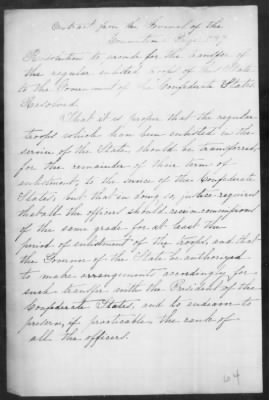 Extract from the Journal of the
Convention Page
Resolution to provide for the transfer of
the regular enlisted troops of this State
to the Government of the Confederate States.
Resolved
That it is proper that the regular
troops which have been enlisted in the
service of the State, should be transferred,
for the remainder of their term of
enlistment, to the service of the Confederate
States; but that in doing so, justice requires
that all the officers should receive commissions
of the same grade for at least the
period of enlistment of the troops, and that
the Governor of the State be authorized
to make arrangements accordingly for
such transfer with the President of the
Confederate States, and to endeavor to
preserve, if practicable the rank of
all the officers.